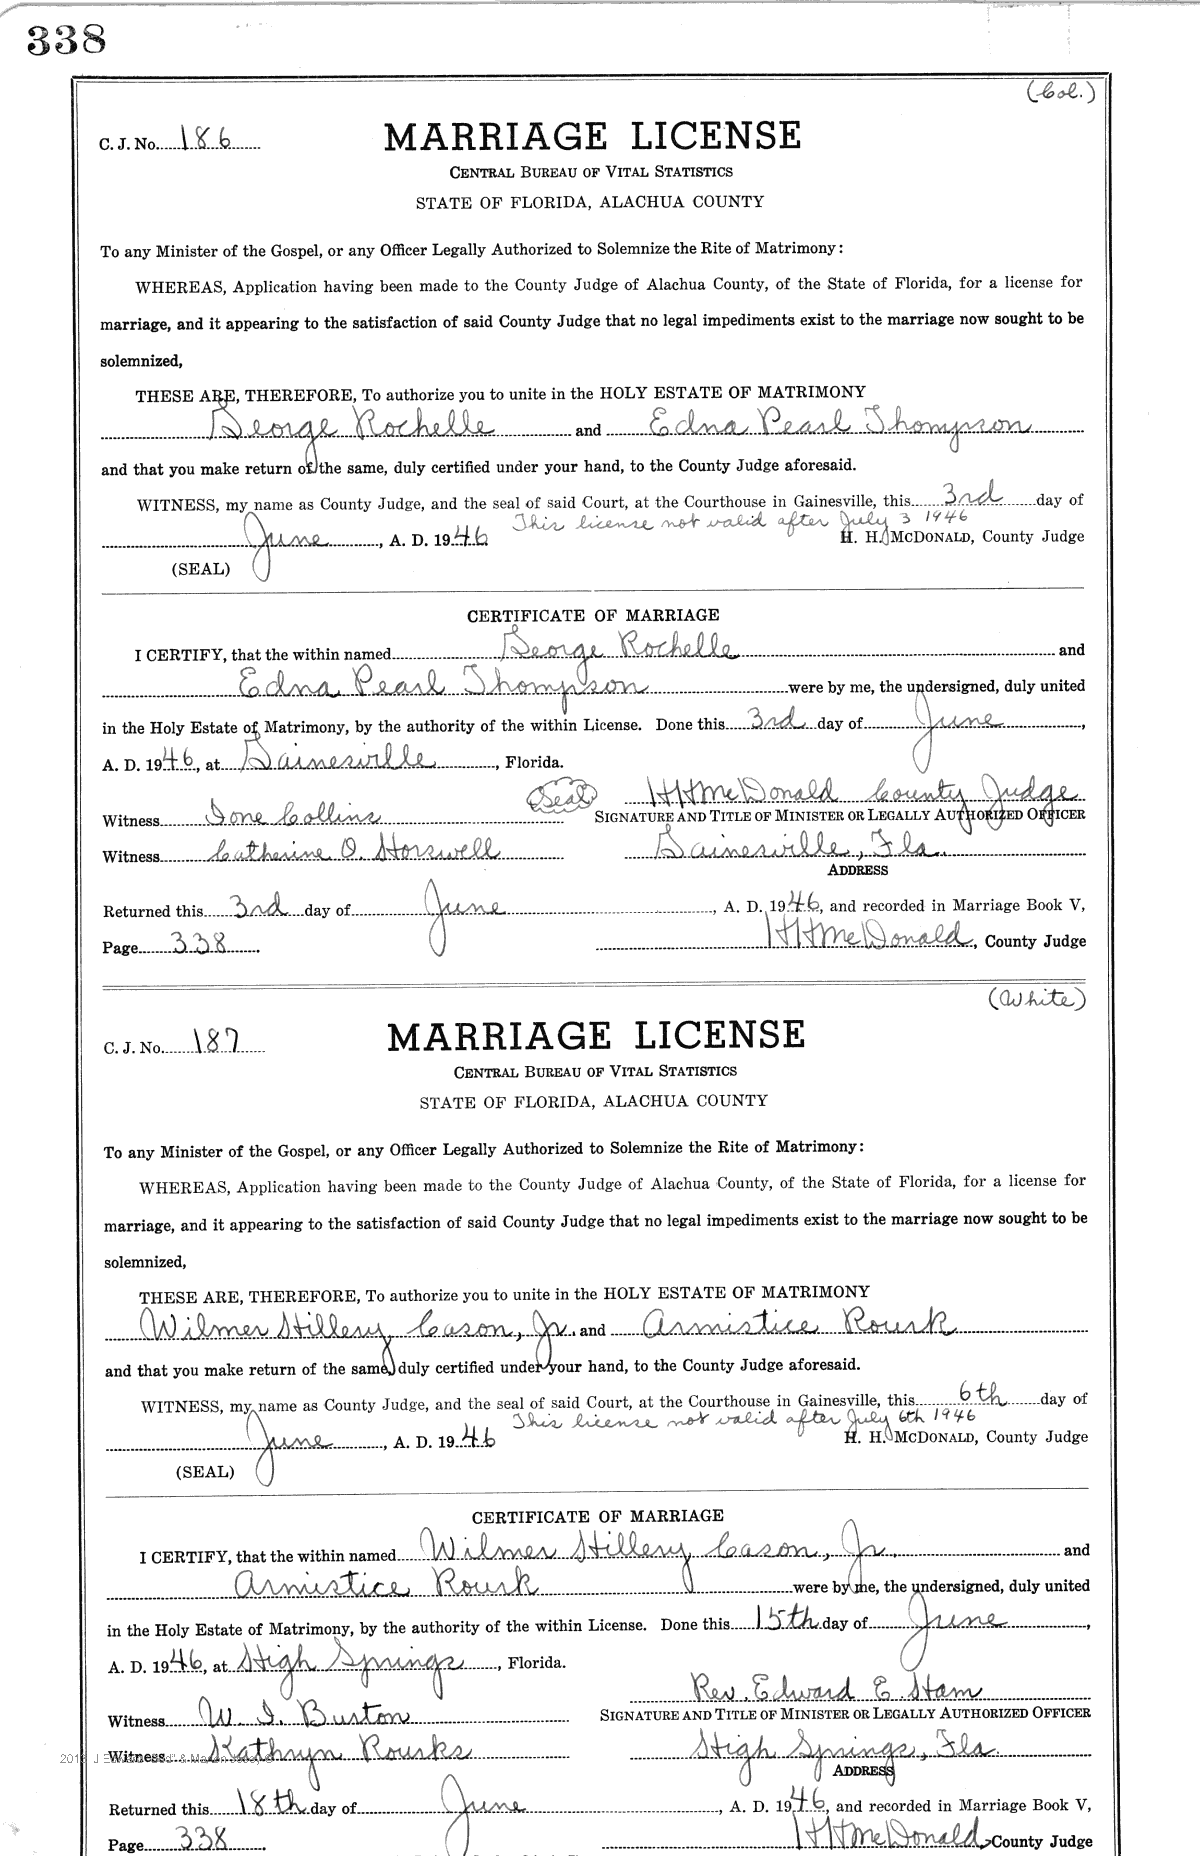 338
(Col.)
C. J. No. 186
MARRIAGE LICENSE
CENTRAL BUREAU OF VITAL STATISTICS
STATE OF FLORIDA, ALACHUA COUNTY
To any Minister of the Gospel, or any Officer Legally Authorized to Solemnize the Rite of Matrimony:
WHEREAS, Application having been made to the County Judge of Alachua County, of the State of Florida, for a license for
marriage, and it appearing to the satisfaction of said County Judge that no legal impediments exist to the marriage now sought to be
solemnized,
THESE ARE, THEREFORE, To authorize you to unite in the HOLY ESTATE OF MATRIMONY
George Rochelle and Edna Pearl Thompson
and that you make return of the same, duly certified under your hand, to the County Judge aforesaid.
WITNESS, my name as County Judge, and the seal of said Court, at the Courthouse in Gainesville, this 3rd day of
This license not valid after July 3 1946
June, A. D. 1946 H. H. MCDONALD, County Judge
(SEAL)
CERTIFICATE OF MARRIAGE
I CERTIFY, that the within named George Rochelle and
Edna Pearl Thompson were by me, the undersigned, duly united
in the Holy Estate of Matrimony, by the authority of the within License. Done this 3rd day of June,
A. D. 1946, at Gainesville, Florida.
(Seal) HHMcDonald County Judge
Witness Ione Collins SIGNATURE AND TITLE OF MINISTER OR LEGALLY AUTHORIZED OFFICER
Witness Catherine O. Horswell Gainesville, Fla.
ADDRESS
Returned this 3rd day of June, A. D. 1946, and recorded in Marriage Book V,
Page 338 HHMcDonald, County Judge
(White)
C. J. No. 187
MARRIAGE LICENSE
CENTRAL BUREAU OF VITAL STATISTICS
STATE OF FLORIDA, ALACHUA COUNTY
To any Minister of the Gospel, or any Officer Legally Authorized to Solemnize the Rite of Matrimony:
WHEREAS, Application having been made to the County Judge of Alachua County, of the State of Florida, for a license for
marriage, and it appearing to the satisfaction of said County Judge that no legal impediments exist to the marriage now sought to be
solemnized,
THESE ARE, THEREFORE, To authorize you to unite in the HOLY ESTATE OF MATRIMONY
Wilmer Hillery Cason, Jr. and Armistice Rourk
and that you make return of the same, duly certified under your hand, to the County Judge aforesaid.
WITNESS, my name as County Judge, and the seal of said Court, at the Courthouse in Gainesville, this 6th day of
This license not valid after July 6th 1946
June, A. D. 1946 H. H. MCDONALD, County Judge
(SEAL)
CERTIFICATE OF MARRIAGE
I CERTIFY, that the within named Wilmer Hillery Cason, Jr. and
Armistice Rourk were by me, the undersigned, duly united
in the Holy Estate of Matrimony, by the authority of the within License. Done this 15th day of June,
A. D. 1946, at High Springs, Florida.
Rev. Edward E Ham
Witness W. I. Burton SIGNATURE AND TITLE OF MINISTER OR LEGALLY AUTHORIZED OFFICER
Witness Kathryn Rourks High Springs, Fla.
ADDRESS
Returned this 18th day of June, A. D. 1946, and recorded in Marriage Book V,
Page 338 HHMcDonald, County Judge